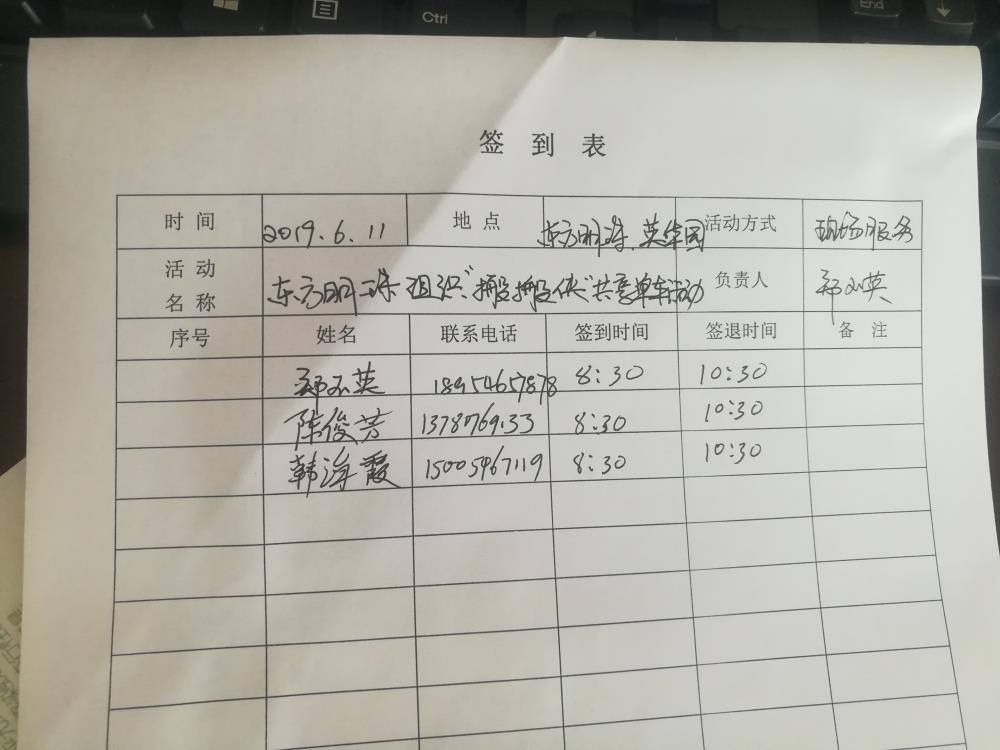 End
Ctrl
签到表
时间 2019.6.11 地点 东方明珠.英华园 活动方式 现场服务
活动名称 东方明珠组织"搬搬侠"共享单车活动 负责人 郑玉英
序号 姓名 联系电话 签到时间 签退时间 备注
郑玉英 18954657878 8:30 10:30
陈俊芳 8:30 10:30
韩海霞 15005467119 8:30 10:30